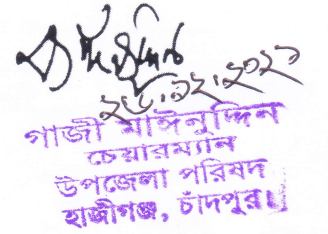 ২৮.১২.২০২১
গাজী মাঈনুদ্দিন
চেয়ারম্যান
উপজেলা পরিষদ
হাজীগঞ্জ, চাঁদপুর।